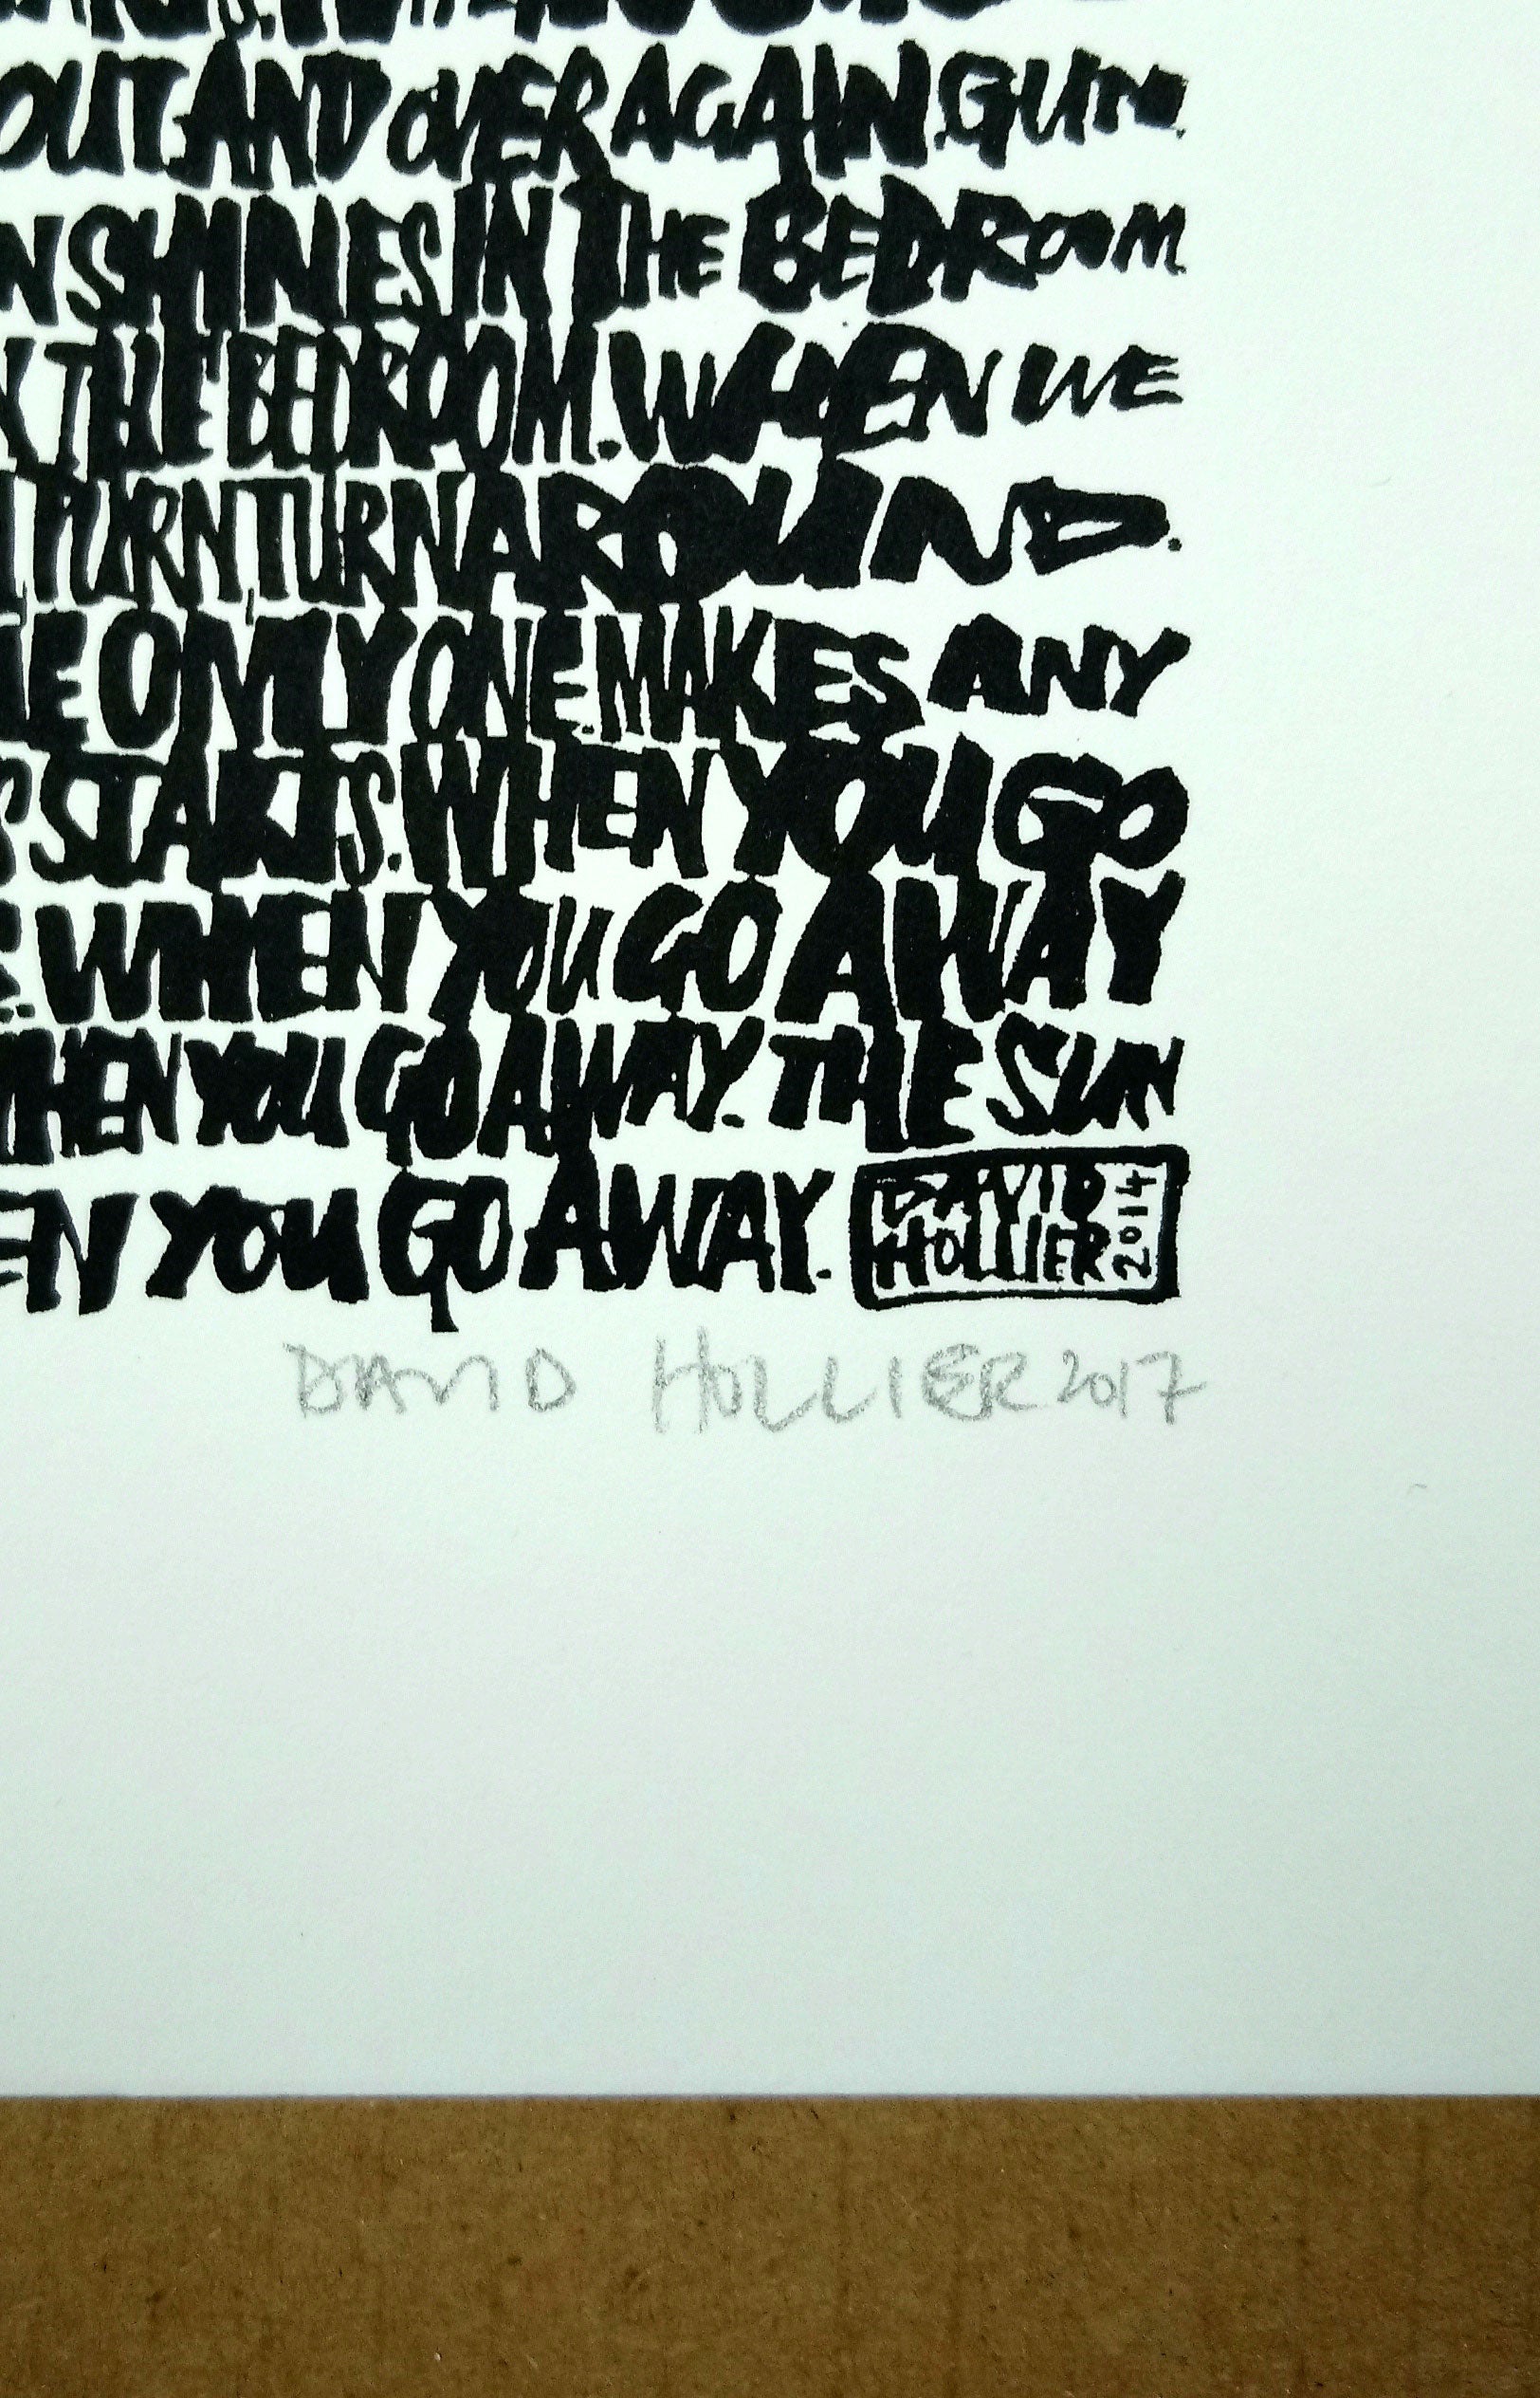 OUT AND OVER AGAIN. GUNN.
N SHINES IN THE BEDROOM.
THE BEDROOM. WHEN WE
TURN, TURN AROUND.
ONLY ONE. MAKES ANY
STARTS. WHEN YOU GO
WHEN YOU GO AWAY
WHEN YOU GO AWAY. THE SUN
EN YOU GO AWAY. DAVID HOLLIER 2014
DAVID HOLLIER 2017